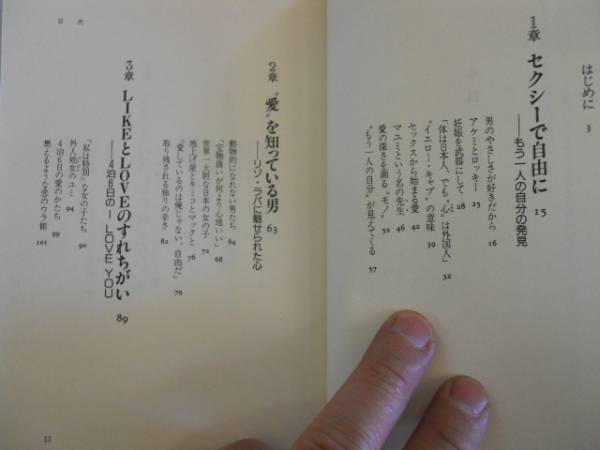 はじめに 3
1章 セクシーで自由に 15
――もう一人の自分の発見
男のやさしさが好きだから 16
アケミとロッキー 25
妊娠を武器にして 28
「体は日本人、でも〝心〟は外国人」 32
〝イエロー・キャブ〟の意味 39
セックスから始まる愛 42
マユミという名の先生 46
愛の深さを測る〝モノ〟 52
〝もう一人の自分〟が見えてくる 57
2章 〝愛〟を知っている男 63
――リゾ・ラバに魅せられた心
動物的になれない男たち 64
「宝物扱いが何より心地いい」 68
世界一大胆な日本の女の子 72
地上げ屋とキミコとマックと 76
「愛しているのは俺じゃない、自由だ」 79
取り残される独りの辛さ 82
3章 LIKEとLOVEのすれちがい 89
――4泊6日の I LOVE YOU
「私は特別」な女の子たち 90
外人処女のユミ 94
4泊6日の愛のかたち 99
燃えるような恋のウラ側 101
目次
11